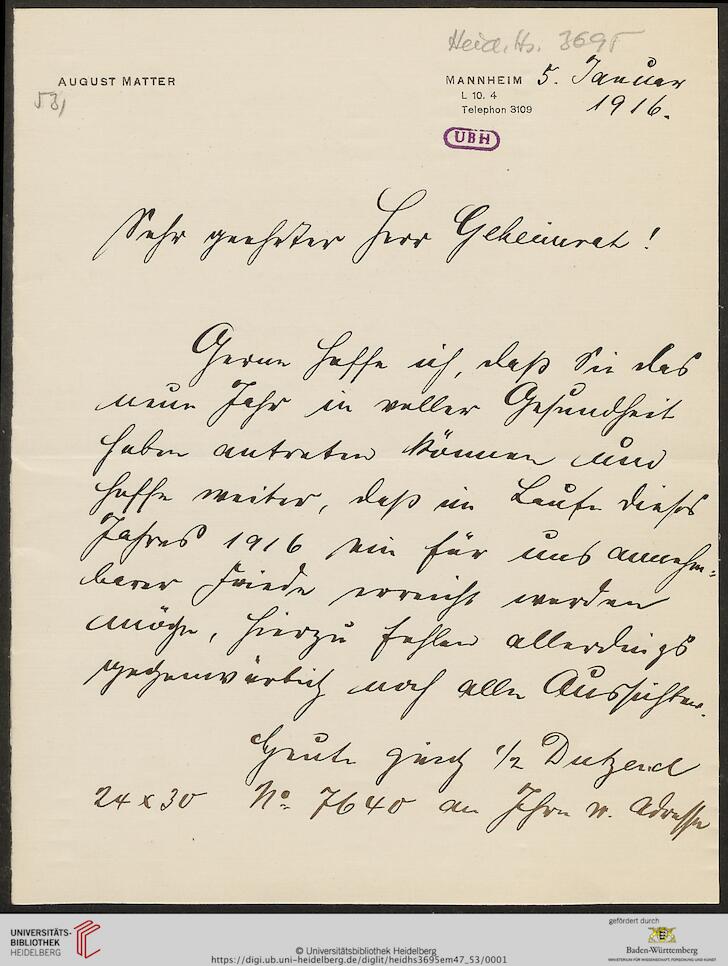 Heid. Hs. 3695
AUGUST MATTER
53,
MANNHEIM 5. Januar
L 10. 4
1916.
Telephon 3109
UBH
Sehr geehrter Herr Geheimrat!
Gerne hoffe ich, daß Sie das
neue Jahr in voller Gesundheit
haben antreten können und
hoffe weiter, daß im Laufe dieses
Jahres 1916 ein für uns annehm-
barer Friede erreicht werden
möge, hierzu fehlen allerdings
gegenwärtig noch alle Aussichten.
Heute ging 1/2 Dutzend
24 x 30 No 7640 an Ihre w. Adresse
UNIVERSITÄTS-
BIBLIOTHEK
HEIDELBERG
© Universitätsbibliothek Heidelberg
https://digi.ub.uni-heidelberg.de/diglit/heidhs3695em47_53/0001
gefördert durch
Baden-Württemberg
MINISTERIUM FÜR WISSENSCHAFT, FORSCHUNG UND KUNST